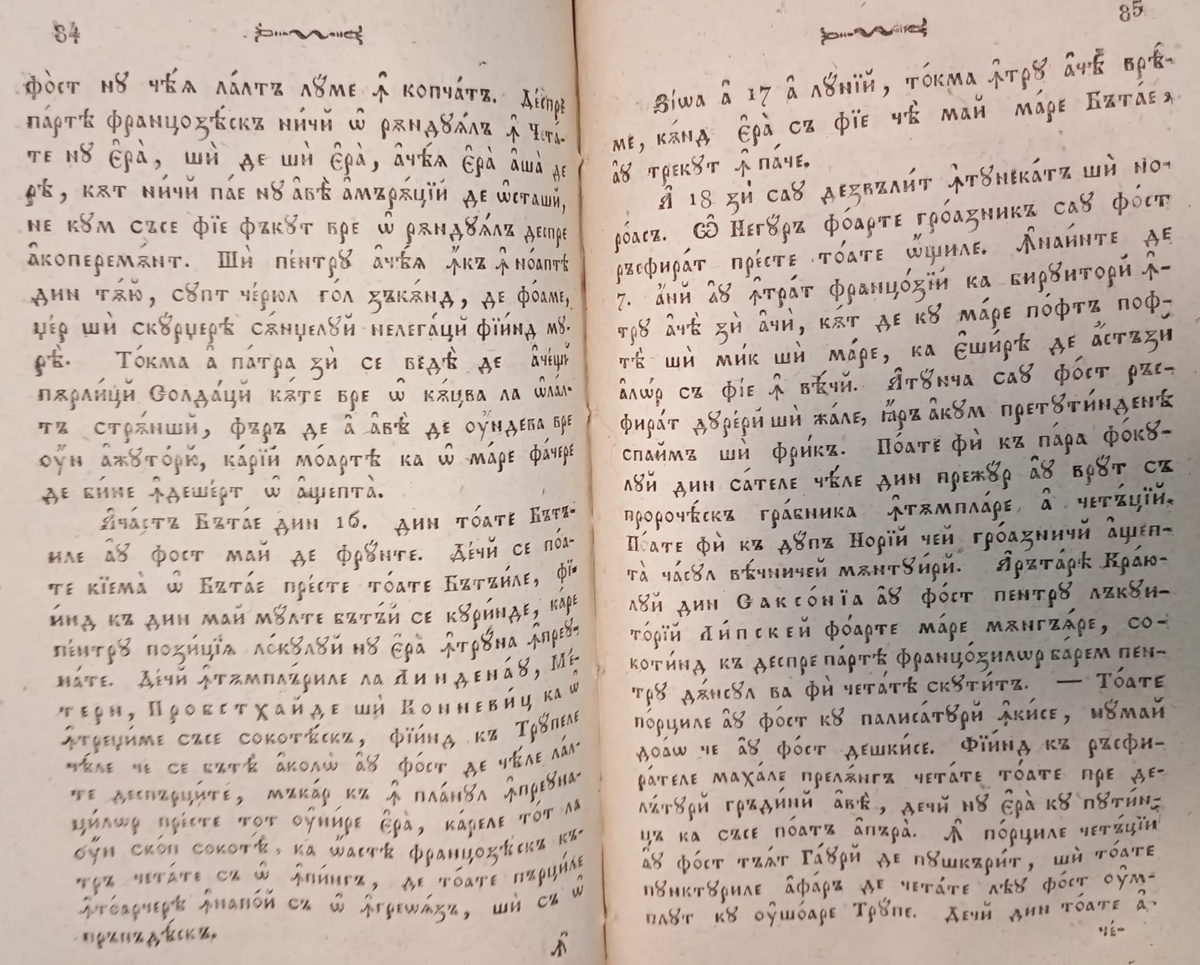 84
фо̀ст нꙋ чѣ́ѧ ла́лтъ лꙋ́ме ꙟ копча́тъ. Де́спре
па́ртѣ францозѣ́скъ ни́чй ѡ҆ рѫндꙋѧ́лъ ꙟ Чета́-
те нꙋ є҆ра̀, шѝ де шѝ є҆ра̀, а҆чѣ́ѧ є҆ра̀ а҆ша̀ де
рѣ́, кѫт ни́чй па́е нꙋ а҆вѐ а҆мърѫ́цїй де ѡ҆сташй,
не кꙋм съсе фі́е фъкꙋт вре ѡ҆ рѫндꙋѧ́лъ деспре
а҆коперемѫ́нт. Шѝ пе́нтрꙋ а҆чѣ́ѧ ꙟ҆къ ꙟ но́аптѣ
дин тѫ́ю, сꙋпт че́рюл го́л зъкѫ́нд, де фо́аме,
џер шѝ скꙋ́рџерѣ сѫ́нџелꙋй нелега́цй фїи́нд мꙋ-
рѐ. То́кма а҆ па́тра зѝ се ведѐ де а҆че́щй
пѫрли́цй Солда́цй кѫ́те вре ѡ҆ кѫ́цва ла ѡ҆лал-
тъ стрѫ́ншй, фъръ де а҆ а҆вѐ де оу҆ндева вре
оу҆н а҆жꙋто́рю, ка́рїй мо́артѣ ка ѡ҆ ма́ре фа́чере
де би́не ꙟдеше́рт ѡ҆ а҆щепта̀.
Ꙟча́стъ Бъта́е дин 16. дин то́ате Бътъ-
иле а҆ꙋ фост май де фрꙋ́нте. Де́чй се по́а-
те кїема̀ ѡ҆ Бъта́е пре́сте то́ате Бътъи́ле, фї-
и́нд къ дин май мꙋ́лте бътъ́й се кꙋри́нде, ка́ре
пе́нтрꙋ пози́цїѧ ло́кꙋлꙋй нꙋ є҆ра̀ ꙟтрꙋ́на ꙟпреꙋ-
на́те. Де́чй ꙟтѫмплъриле ла Линдена́ꙋ, Ме́-
герн, Пробстха́йде шѝ Конневи́ц ка ѡ҆
ꙟтреци́ме съсе сокотѣ́скъ, фїи́нд къ Трꙋпеле
чѣ́ле че се бътѐ а҆коло̀ а҆ꙋ фост де чѣ́ле ла́л-
те деспърци́те, мъка́р къ ꙟ пла́нꙋл ꙟпреꙋна-
ци́лѡр пре́сте тот оу҆ни́ре є҆ра̀, кареле то́т ла
оу҆н ско́п сокотѐ, ка ѡ҆а́стѣ францозѣ́скъ къ-
тръ чета́те съ ѡ҆ ꙟпи́нгъ, де то́ате пърци́ле
ꙟто́арчерѣ ꙟнапо́й съ ѡ҆ ꙟгреѡѧзъ, шѝ съ ѡ҆
пръпъдѣ́скъ.
ꙟ
85
Зі́ѡа а҆ 17 а҆ лꙋ́нїй, то́кма ꙟтрꙋ а҆чѐ врѐ-
ме, кѫнд є҆ра̀ съ фі́е чѐ май ма́ре Бъта́е,
а҆ꙋ трекꙋт ꙟ па́че.
А҆ 18 зѝ саꙋ дезвъли́т ꙟтꙋнека́тъ шѝ но-
ро́асъ. Ѡ҆ Не́гꙋръ фо́арте гро́азникъ саꙋ фо́ст
ръсфира́т пре́сте то́ате ѡ҆щиле. Ꙟнаи́нте де
7. а҆нй а҆ꙋ ꙟтра́т францо́зїй ка бирꙋитори́ ꙟ-
трꙋ а҆чѐ зѝ а҆чѝ, кѫт де кꙋ ма́ре по́фтъ поф-
тѐ шѝ ми́к шѝ ма́ре, ка є҆ши́рѣ де а҆стъзѝ
а҆лѡ́р съ фі́е ꙟ вѣ́чй. Атꙋнча саꙋ фо́ст ръс-
фира́т дꙋре́рй шѝ жа́ле, ꙗ҆ръ а҆кꙋм претꙋти́нденѣ
спа́ймъ шѝ фри́къ. По́ате фѝ къ па́ра фо́кꙋ-
лꙋй дин са́теле чѣ́ле дин прежꙋ́р а҆ꙋ врꙋ́т съ
пророчѣ́скъ гра́бника ꙟтѫмпла́ре а҆ четъ́цїй.
По́ате фѝ къ дꙋпъ Но́рїй чей гро́азничй а҆щеп-
та̀ ча́сꙋл вѣ́чничей мѫнтꙋи́рй. Ꙟръта́рѣ Кра́ю-
лꙋй дин Саксо́нїа а҆ꙋ фо́ст пентрꙋ лъкꙋи-
то́рїй Ли́пскей фо́арте ма́ре мѫнгъѧ́ре, со-
коти́нд къ деспре па́ртѣ францо́зилѡр ба́рем пен-
трꙋ дѫ́нсꙋл ва фѝ чета́тѣ скꙋти́тъ. — То́ате
по́рциле а҆ꙋ фо́ст кꙋ палисатꙋри ꙟки́се, нꙋма́й
до́аѡ че а҆ꙋ фо́ст дешки́се. Фїи́нд къ ръсфи-
ра́теле маха́ле прелѫ́нгъ чета́те то́ате пре де-
лъ́тꙋрй гръди́нй а҆вѐ, де́чй нꙋ є҆ра̀ кꙋ пꙋти́н-
цъ ка съсе по́атъ а҆пъра̀. Ꙟ по́рциле четъ́цїй
а҆ꙋ фо́ст тъѧ́т Га́ꙋрй де пꙋшкъри́т, шѝ то́ате
пꙋнктꙋриле а҆фа́ръ де чета́те лѣꙋ фо́ст оу҆м-
плꙋт кꙋ оу҆шо́аре Трꙋ́пе. Де́чй дин то́ате а҆-
че́-